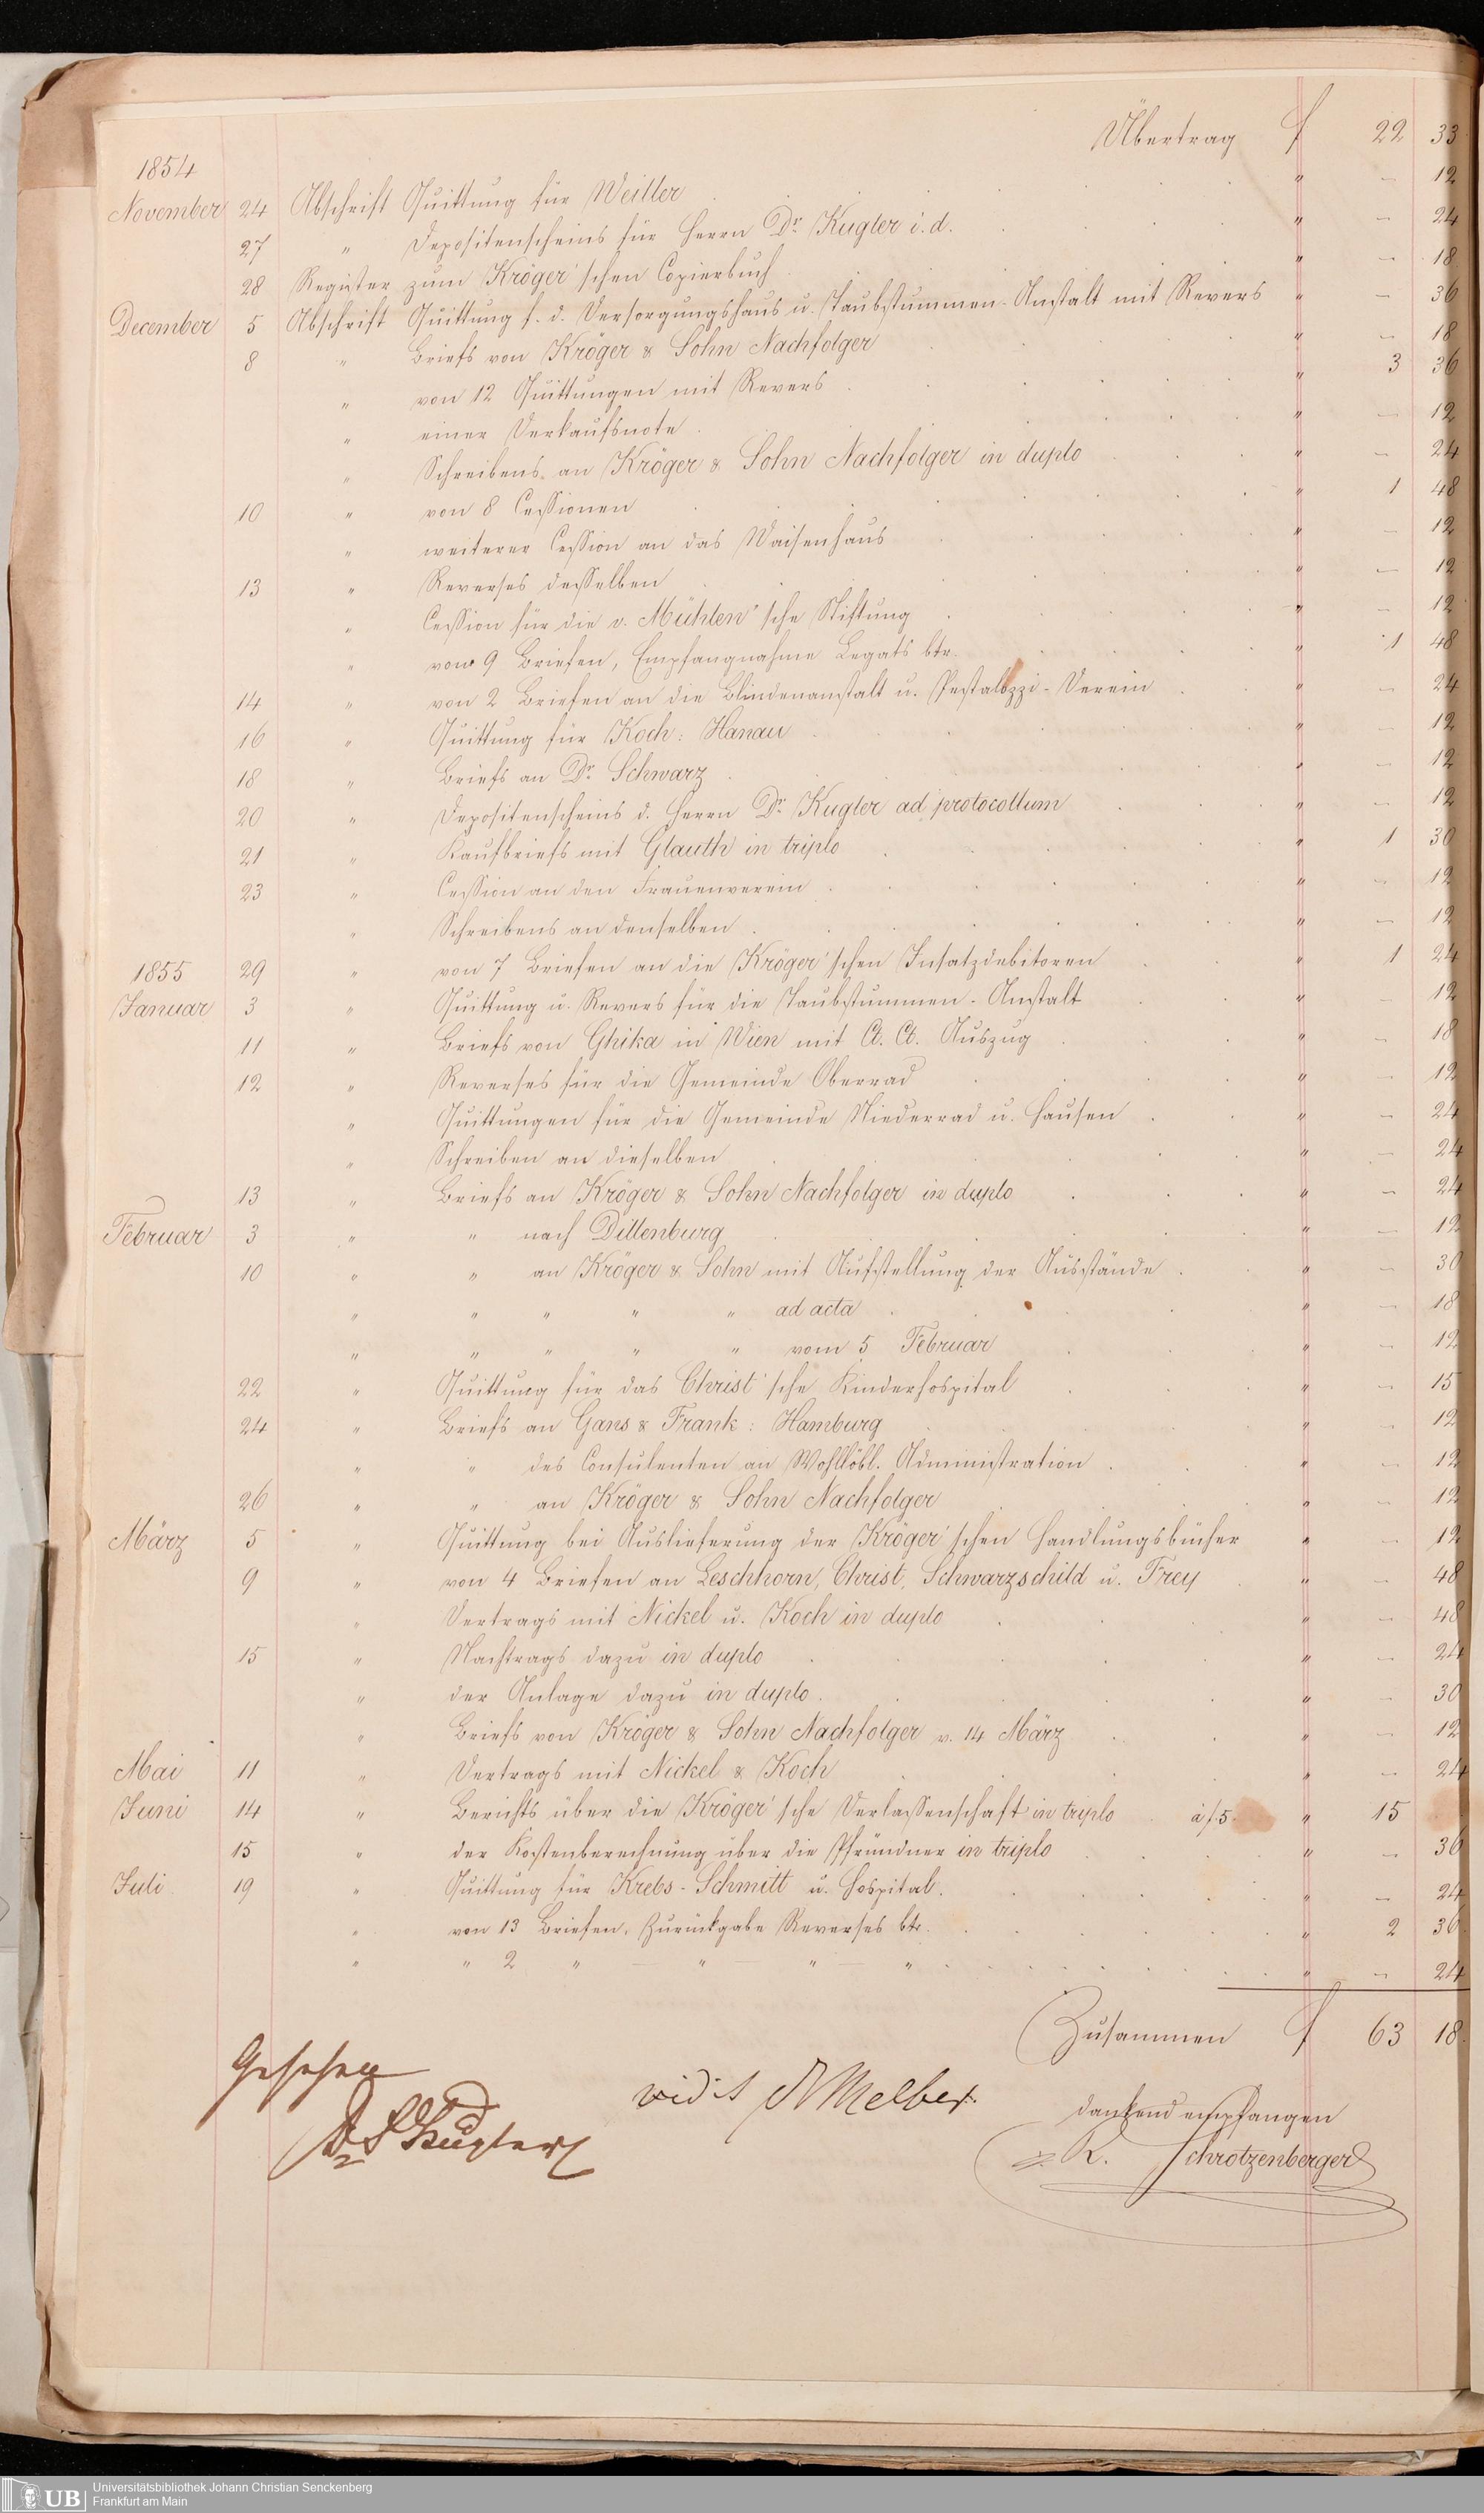 Übertrag f 22 33
1854
November 24 Abschrift Quittung für Weiller . " — 12
27 " Depositenscheins für Herrn Dr. Kugler i. d. " — 24
28 Register zum Kröger'schen Copierbuch . " — 18
December 5 Abschrift Quittung f. d. Versorgungshaus u. Taubstummen-Anstalt mit Revers " — 36
8 " Briefs von Kröger & Sohn Nachfolger " — 18
" von 12 Quittungen mit Revers . " 3 36
" einer Verkaufsnote . " — 12
" Schreibens an Kröger & Sohn Nachfolger in duplo " — 24
10 " von 8 Cessionen " 1 48
" weiterer Cession an das Waisenhaus " — 12
13 " Reverses desselben " — 12
" Cession für die v. Mühlen'sche Stiftung " — 12
" von 9 Briefen, Empfangnahme Legats btr. " 1 48
14 " von 2 Briefen an die Blindenanstalt u. Pestalozzi-Verein " — 24
16 " Quittung für Koch: Hanau " — 12
18 " Briefs an Dr. Schwarz " — 12
20 " Depositenscheins d. Herrn Dr. Kugler ad protocollum " — 12
21 " Kaufbriefs mit Glauth in triplo " 1 30
23 " Cession an den Frauenverein " — 12
" Schreibens an denselben " — 12
1855 29 " von 7 Briefen an die Kröger'schen Insatzdebitoren " 1 24
Januar 3 " Quittung u. Revers für die Taubstummen-Anstalt " — 12
11 " Briefs von Ghika in Wien mit Ct. Ct. Auszug " — 18
12 " Reverses für die Gemeinde Oberrad " — 12
" Quittungen für die Gemeinde Niederrad u. Hausen " — 24
" Schreiben an dieselben " — 24
13 " Briefs an Kröger & Sohn Nachfolger in duplo " — 24
Februar 3 " " nach Dillenburg " — 12
10 " " an Kröger & Sohn mit Aufstellung der Ausstände " — 30
" " " " " ad acta " — 18
" " " " " vom 5 Februar " — 12
22 " Quittung für das Christ'sche Kinderhospital " — 15
24 " Briefs an Gans & Frank: Hamburg " — 12
" " des Consulenten an Wohllöbl. Administration " — 12
26 " " an Kröger & Sohn Nachfolger " — 12
März 5 " Quittung bei Auslieferung der Kröger'schen Handlungsbücher " — 12
9 " von 4 Briefen an Leschhorn, Christ, Schwarzschild u. Frey " — 48
" Vertrags mit Nickel u. Koch in duplo " — 48
15 " Nachtrags dazu in duplo " — 24
" der Anlage dazu in duplo . " — 30
" Briefs von Kröger & Sohn Nachfolger v. 14 März " — 12
Mai 11 " Vertrags mit Nickel & Koch " — 24
Juni 14 " Berichts über die Kröger'sche Verlassenschaft in triplo à f 5. " 15
15 " der Kostenberechnung über die Pfründner in triplo " — 36
Juli 19 " Quittung für Krebs-Schmitt u. Hospital . " — 24
" von 13 Briefen, Zurückgabe Reverses btr. " 2 36
" " 2 " — " — " — " " — 24
Zusammen f 63 18.
Gesehen
Dr Kugler
vidit Melber.
dankend empfangen
R. Schrotzenberger
UB
Universitätsbibliothek Johann Christian Senckenberg
Frankfurt am Main